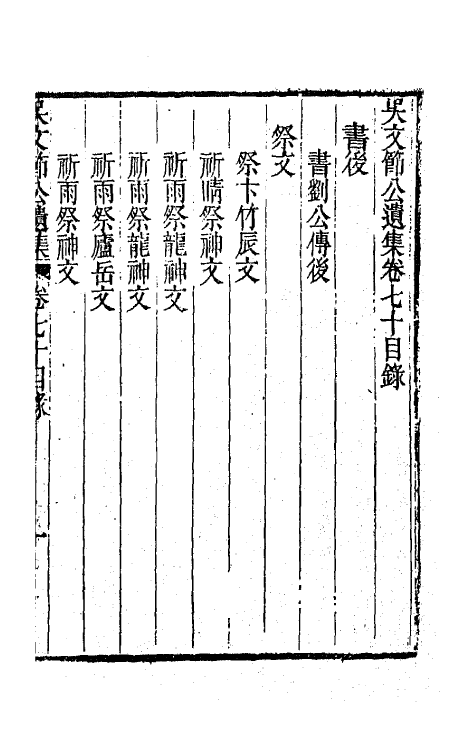 吳文節公遺集卷七十目錄
書後
書劉公傳後
祭文
祭卞竹辰文
祈晴祭神文
祈雨祭龍神文
祈雨祭龍神文
祈雨祭廬岳文
祈雨祭神文
吳文節公遺集 卷七十目錄 一